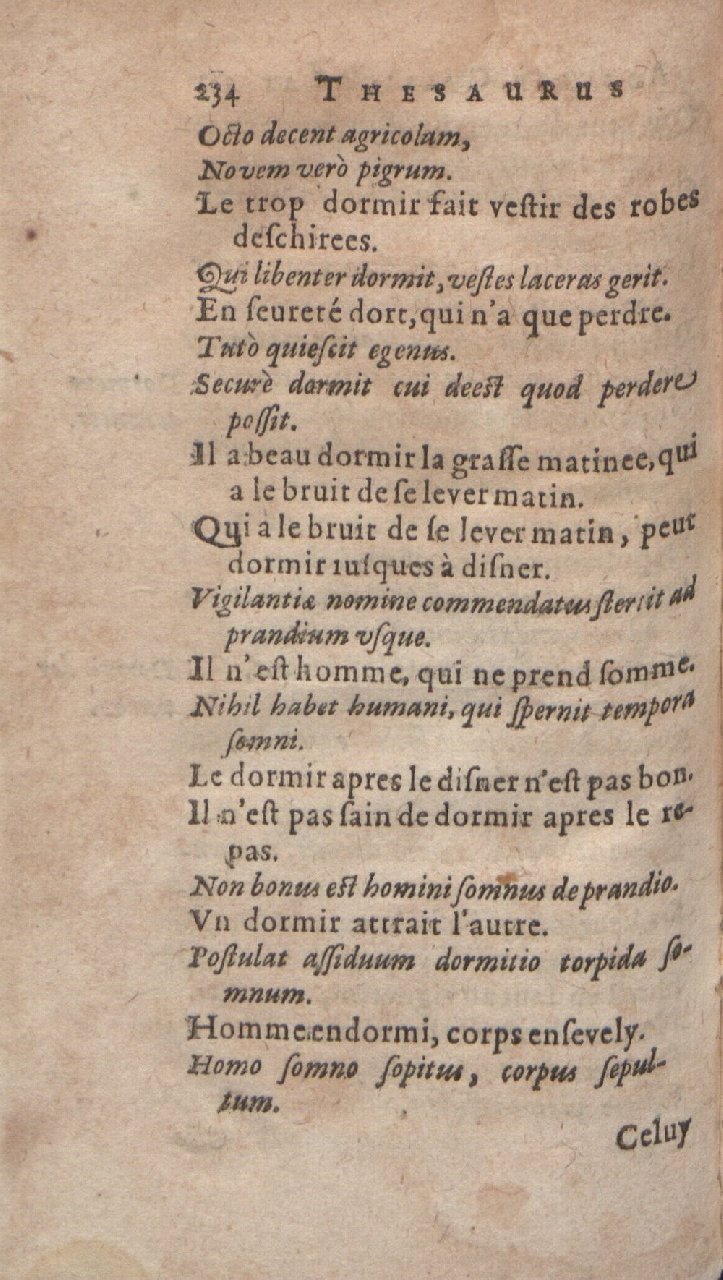 234 THESAURUS
Octo decent agricolam,
Novem verò pigrum.
Le trop dormir fait veſtir des robes
deſchirees.
Qui libenter dormit, veſtes laceras gerit.
En ſeureté dort, qui n'a que perdre.
Tutò quieſcit egenus.
Securè dormit cui deeſt quod perdere
poſſit.
Il a beau dormir la graſſe matinee, qui
a le bruit de ſe lever matin.
Qui a le bruit de ſe lever matin, peut
dormir iuſques à diſner.
Vigilantiæ nomine commendatus ſtertit ad
prandium vſque.
Il n'eſt homme, qui ne prend ſomme.
Nihil habet humani, qui ſpernit tempora
ſomni.
Le dormir apres le diſner n'eſt pas bon.
Il n'eſt pas ſain de dormir apres le re-
pas.
Non bonus eſt homini ſomnus de prandio.
Vn dormir attrait l'autre.
Poſtulat aſſiduum dormitio torpida ſo-
mnum.
Homme endormi, corps enſevely.
Homo ſomno ſopitus, corpus ſepul-
tum.
Celuy